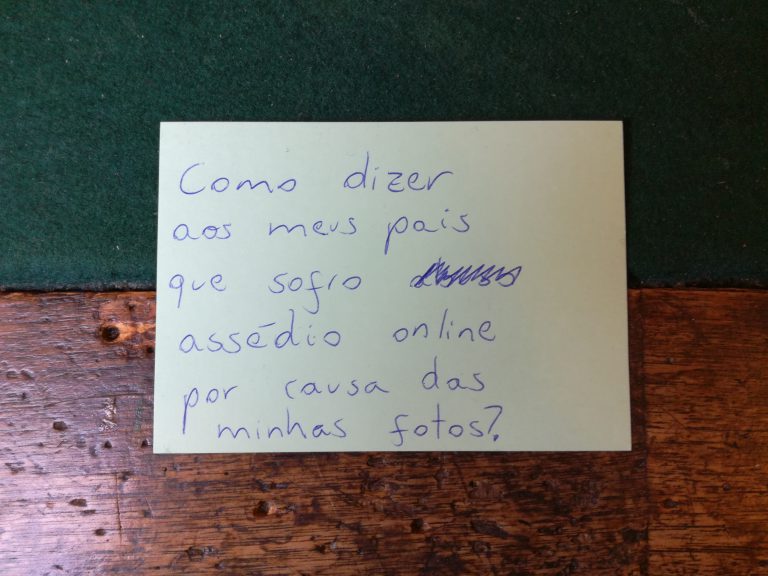 Como dizer
aos meus pais
que sofro
assédio online
por causa das
minhas fotos?